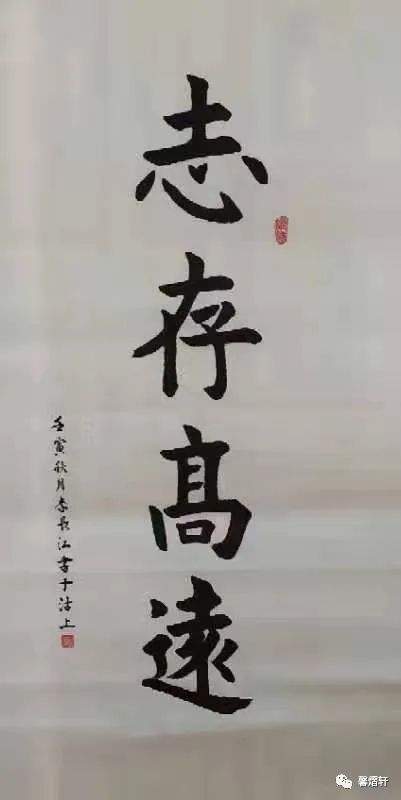 志存高遠
壬寅秋月李長江書于沽上
馨熠轩